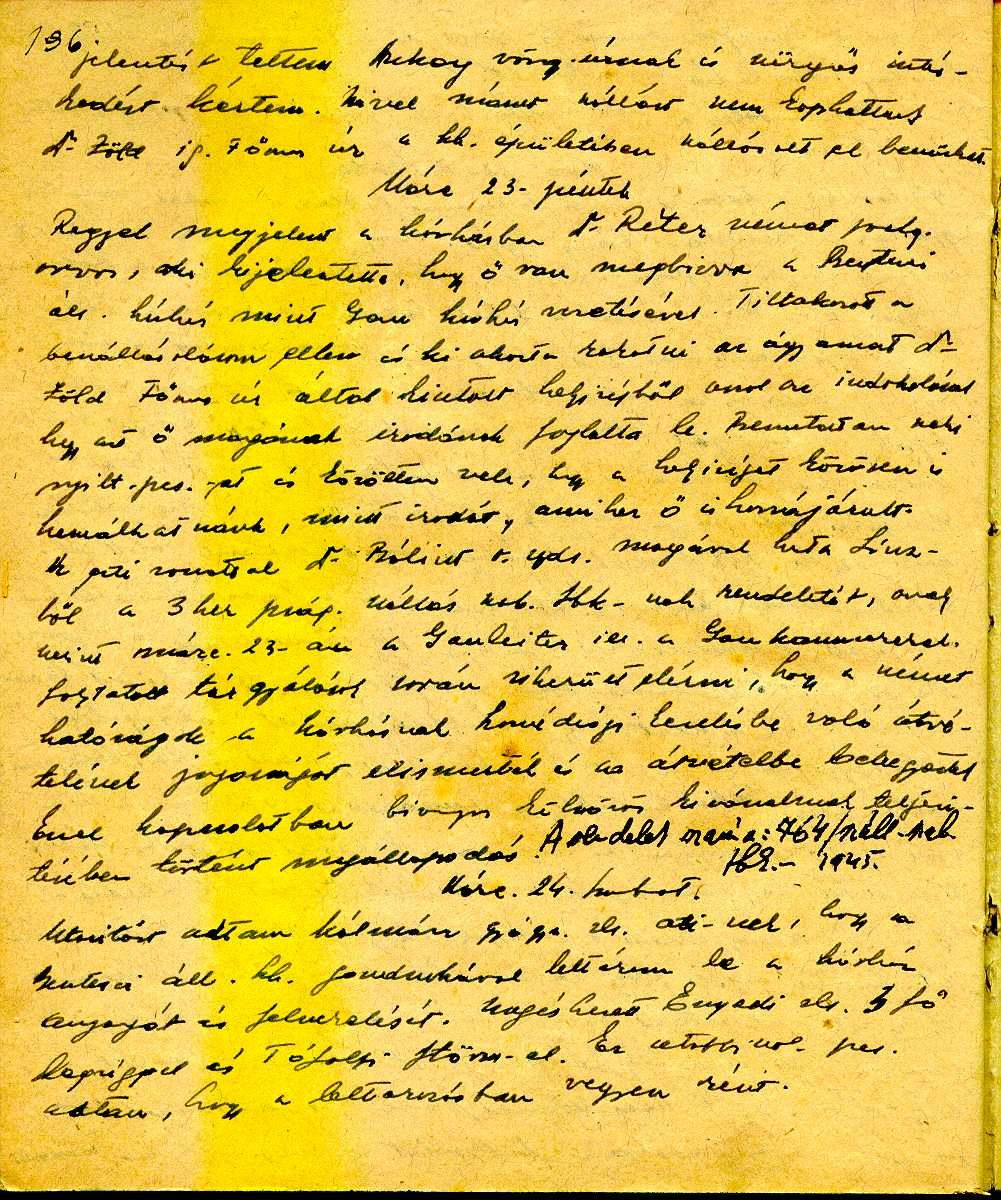 196
jelentést tettem vörg. úrnak és sürgős intéz-
kedést kértem. Mivel szállást nem kaphattunk
dr Zöld ig. Főorv úr a kh. épületében szállásolt el bennünket.
Márc 23- péntek
Reggel megjelent a kórházban dr. Réter német polg.
orvos, aki kijelentette, hogy ő van megbízva a Szentesi
áll. kórház mint Gau kórház vezetésével. Tiltakozott a
beszállásolásom ellen és ki akarta rakatni az ágyamat dr
Zöld Főorv úr által kiutalt helyiségből azzal az indokolással
hogy azt ő magának irodának foglalta le. Bemutattam neki
nyilt-par.-ot és közöltem vele, hogy a helyiséget közösen is
használhatnánk, mint irodát, amihez ő is hozzájárult.
A esti vonattal dr. Bálint magával hozta Linz-
ből a 3 her szállás rendeletét, mely
szerint márc. 23-án a Gauleiter ill. a Gau
folytatott tárgyalások során sikerült elérni, hogy a német
hatóságok a kórháznak honvédségi kezelésbe való átvé-
telének jogosságát elismerték és az átvételbe beleegyeztek
Ezzel kapcsolatban bizonyos különös kívánalmak teljesí-
tésében történt megállapodás. A rendelet száma: 764/száll.
1945.
Márc. 24. szombat.
Utasítást adtam Kálmán gyógy. hogy a
szentesi áll. kh. gondnokával leltározza le a kórház
anyagát és felszerelését. Enyedi 3 fő
legséggel és Tófalvi ftörm-el. Ez utóbbinak par.
adtam, hogy a leltározásban vegyen részt.